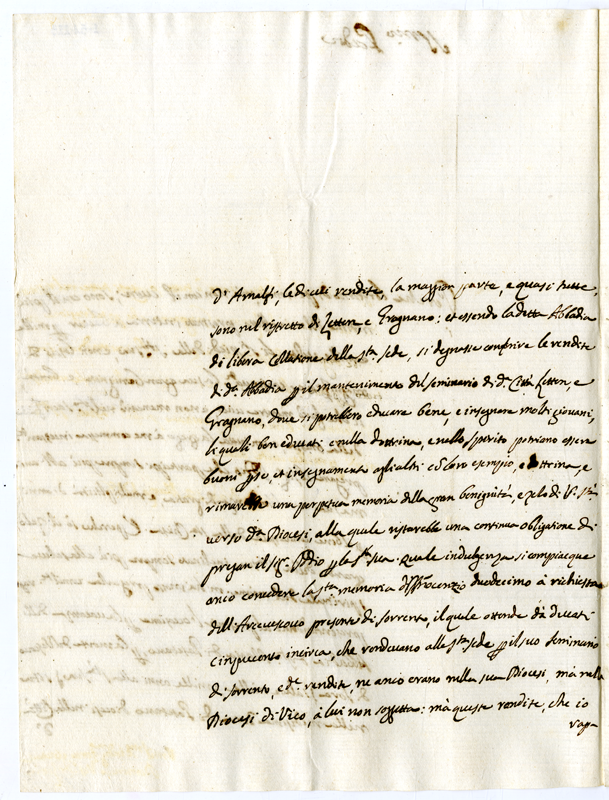 d'Amalfi, le di cui rendite, la maggior parte, e quasi tutte,
sono nel ristretto di Lettere, e Gragnano: et essendo la detta Abbadia
di libera Collatione della s.ta sede, si degnasse conferire le rendite
di d.a Abbadia per il mantenimento del seminario di d.a Città Lettere, e
Gragnano, dove si potrebbero educare bene, e insegnare molti giovani,
li quali ben educati e nella dottrina, e nello spirito potriano essere
buoni per se, et insegnamento agl'altri col loro esempio, e dottrina, e
rimarebbe una perpetua memoria della gran benignità, e zelo di V. S.tà
verso d.a Diocesi, alla quale restarebbe una continua obligatione di
pregar il Sig.r Iddio per la S.tà sua. Quale indulgenza si compiacque
anco concedere la s.ta memoria d'Innocenzio duodecimo à richiesta
dell'Arcivescovo presente di Sorrento, il quale ottenne da ducati
cinquecento incirca, che vendevano alla s.ta sede per il suo seminario
di Sorrento, e d.e rendite, ne anco erano nella sua Diocesi, mà nella
Diocesi di Vico, à lui non soggetta: mà queste rendite, che io